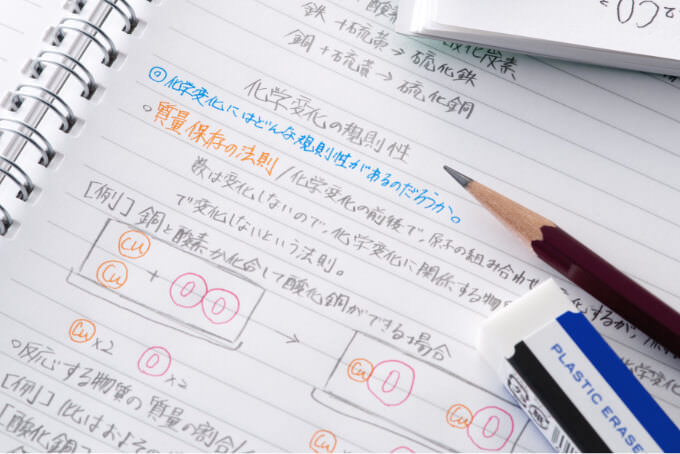 2CO2
鉄+硫黄→硫化鉄
銅+硫黄→硫化銅
化学変化の規則性
◎化学変化にはどんな規則性があるのだろうか。
○質量保存の法則/化学変化の前後で、原子の組み合わせ 変化するが、
数は変化しないので、化学変化に関係する物 化学変化
で変化しないという法則。
[例]銅と酸素が化合して酸化銅ができる場合
Cu
Cu + O O → Cu O
Cu O
Cu×2 O×2
Cu O
○反応する物質の質量の割合/
[例]
[酸化銅]
PLASTIC ERASE